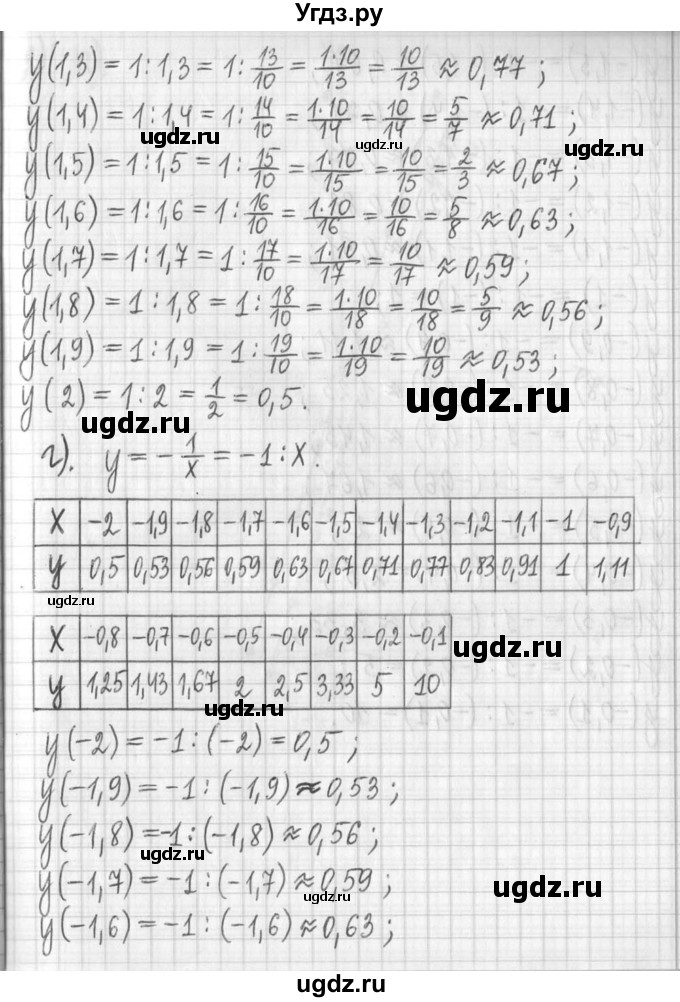 Угдз.ру
y(1,3) = 1 : 1,3 = 1 : 13/10 = 1·10/13 = 10/13 ≈ 0,77 ;
y(1,4) = 1 : 1,4 = 1 : 14/10 = 1·10/14 = 10/14 = 5/7 ≈ 0,71 ;
ugdz.ru ugdz.ru ugdz.ru
y(1,5) = 1 : 1,5 = 1 : 15/10 = 1·10/15 = 10/15 = 2/3 ≈ 0,67 ;
y(1,6) = 1 : 1,6 = 1 : 16/10 = 1·10/16 = 10/16 = 5/8 ≈ 0,63 ;
y(1,7) = 1 : 1,7 = 1 : 17/10 = 1·10/17 = 10/17 ≈ 0,59 ;
y(1,8) = 1 : 1,8 = 1 : 18/10 = 1·10/18 = 10/18 = 5/9 ≈ 0,56 ;
y(1,9) = 1 : 1,9 = 1 : 19/10 = 1·10/19 = 10/19 ≈ 0,53 ;
y(2) = 1 : 2 = 1/2 = 0,5.
ugdz.ru
ugdz.ru
г). y = -1/x = -1 : x.
x -2 -1,9 -1,8 -1,7 -1,6 -1,5 -1,4 -1,3 -1,2 -1,1 -1 -0,9
y 0,5 0,53 0,56 0,59 0,63 0,67 0,71 0,77 0,83 0,91 1 1,11
ugdz.ru
x -0,8 -0,7 -0,6 -0,5 -0,4 -0,3 -0,2 -0,1
ugdz.ru
y 1,25 1,43 1,67 2 2,5 3,33 5 10
ugdz.ru
y(-2) = -1 : (-2) = 0,5 ;
y(-1,9) = -1 : (-1,9) ≈ 0,53 ;
y(-1,8) = -1 : (-1,8) ≈ 0,56 ;
ugdz.ru
y(-1,7) = -1 : (-1,7) ≈ 0,59 ;
ugdz.ru ugdz.ru
y(-1,6) = -1 : (-1,6) ≈ 0,63 ;
ugdz.ru